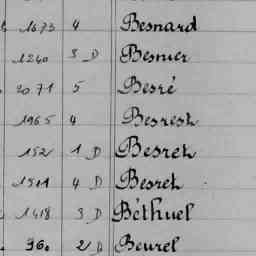 1673 4 Besnard
1240 3 D Besnier
2071 5 Besré
1965 4 Besresh
152 1 D Besret
1511 4 D Besret
1418 3 D Béthuel
360 2 D Beurel